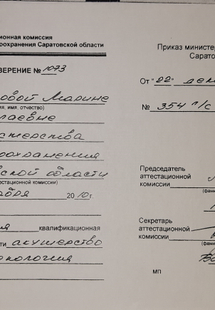 ционная комиссия
оохранения Саратовской области
ВЕРЕНИЕ № 1073
овой Марине
я, имя, отчество)
лаевне
стерства
оохранения
ской области
тестационной комиссии)
2010 г.
квалификационная
сти акушерство
кология
Приказ министе
Сарато
От «22» дека
№ 354 л/с
Председатель
аттестационной
комиссии
(фам
Секретарь
аттестационной
комиссии
(фам
МП